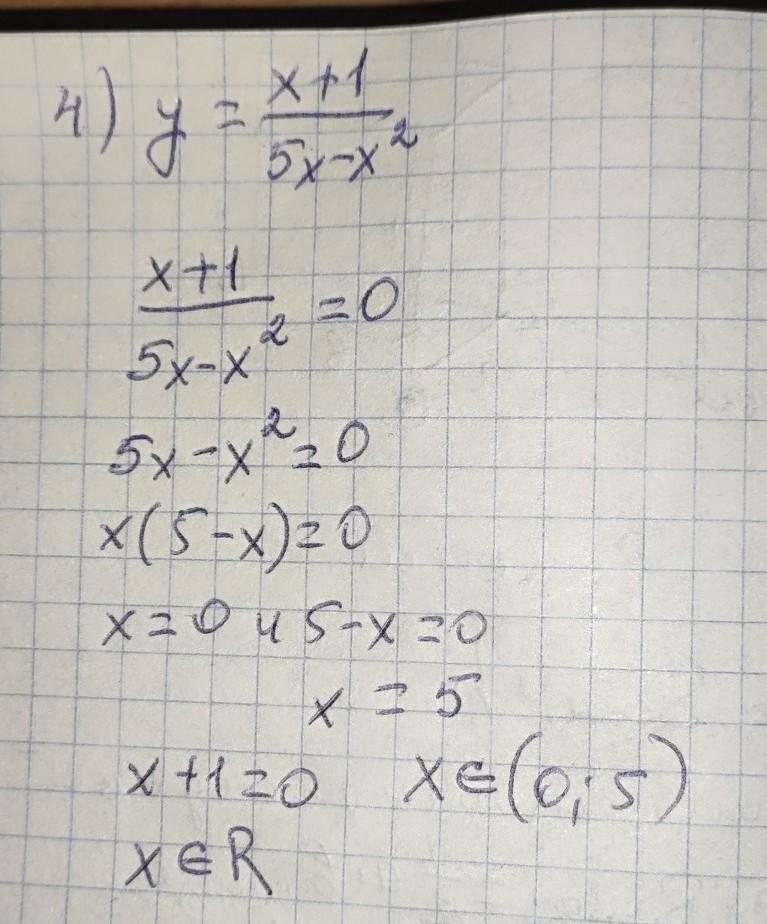 4) y = (x+1)/(5x-x²)
(x+1)/(5x-x²) = 0
5x-x²=0
x(5-x)=0
x=0 и 5-x=0
x = 5
x+1=0 x∈(0;5)
x∈R